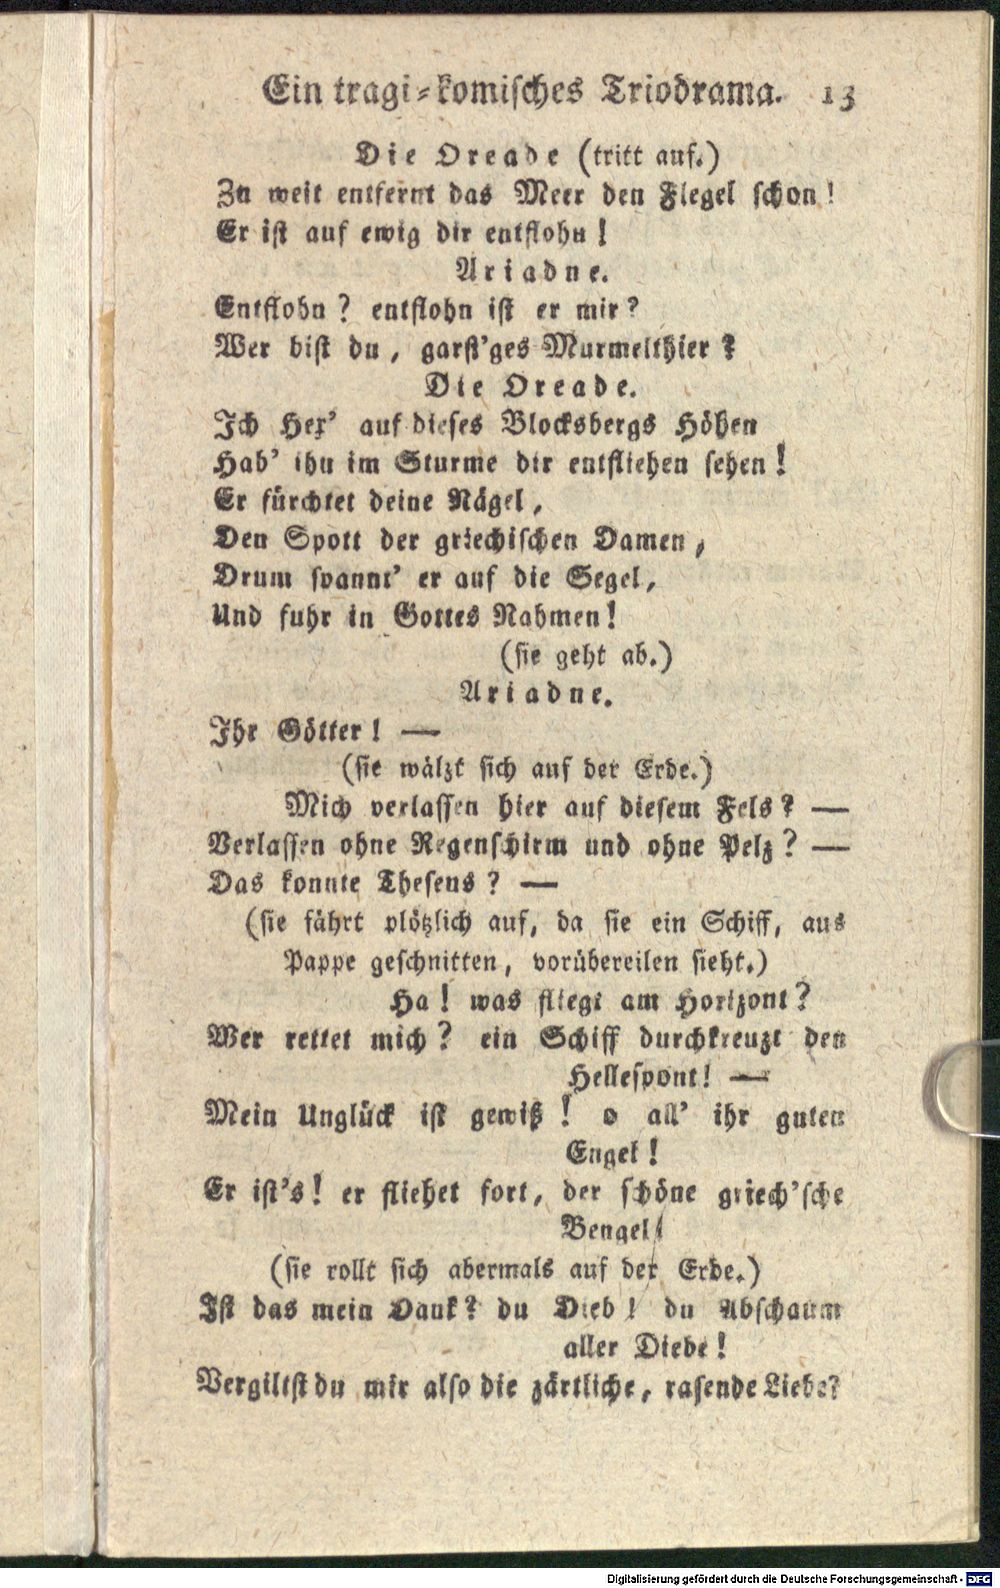 Ein tragi-komisches Triodrama. 13
Die Oreade (tritt auf.)
Zu weit entfernt das Meer den Flegel schon!
Er ist auf ewig dir entflohn!
Ariadne.
Entflohn? entflohn ist er mir?
Wer bist du, garst'ges Murmelthier?
Die Oreade.
Ich Hex' auf dieses Blocksbergs Höhen
Hab' ihn im Sturme dir entfliehen sehen!
Er fürchtet deine Nägel,
Den Spott der griechischen Damen,
Drum spannt' er auf die Segel,
Und fuhr in Gottes Nahmen!
(sie geht ab.)
Ariadne.
Ihr Götter! —
(sie wälzt sich auf der Erde.)
Mich verlassen hier auf diesem Fels? —
Verlassen ohne Regenschirm und ohne Pelz? —
Das konnte Theseus? —
(sie fährt plötzlich auf, da sie ein Schiff, aus
Pappe geschnitten, vorübereilen sieht.)
Ha! was fliegt am Horizont?
Wer rettet mich? ein Schiff durchkreuzt den
Hellespont! —
Mein Unglück ist gewiß! o all' ihr guten
Engel!
Er ist's! er fliehet fort, der schöne griech'sche
Bengel!
(sie rollt sich abermals auf der Erde.)
Ist das mein Dank? du Dieb! du Abschaum
aller Diebe!
Vergiltst du mir also die zärtliche, rasende Liebe?
Digitalisierung gefördert durch die Deutsche Forschungsgemeinschaft - DFG